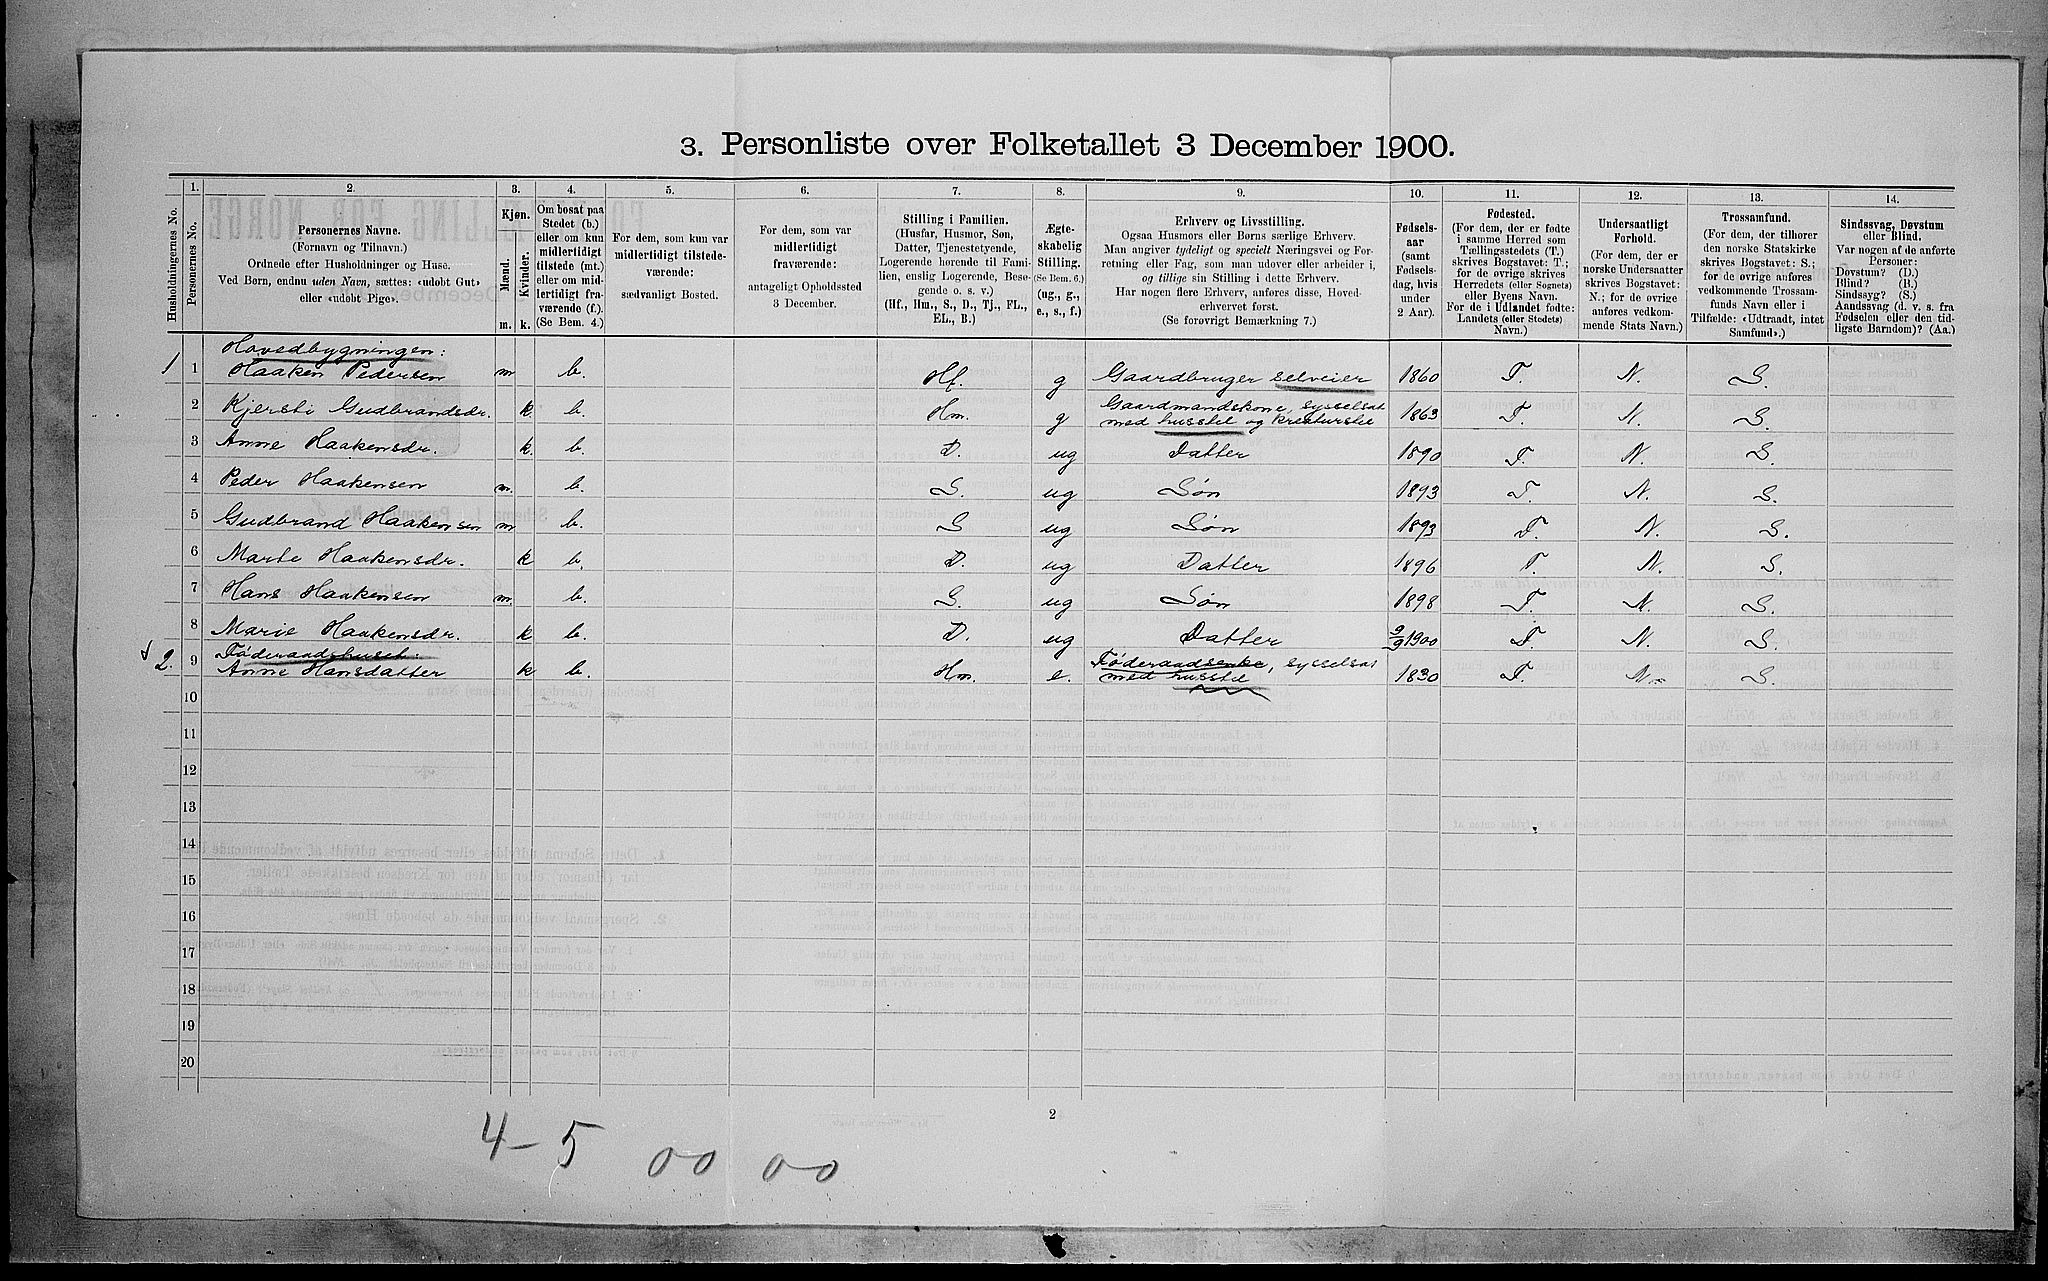 3. Personliste over Folketallet 3 December 1900.
Husholdningernes No.
1.
Personernes No.
2.
Personernes Navne.
(Fornavn og Tilnavn.)
Ordnede efter Husholdninger og Huse.
Ved Børn, endnu uden Navn, sættes: «udøbt Gut»
eller «udøbt Pige».
3.
Kjøn.
Mænd.
Kvinder.
m. k.
4.
Om bosat paa
Stedet (b.)
eller om kun
midlertidigt
tilstede (mt.)
eller om mid-
lertidigt fra-
værende (f.).
(Se Bem. 4.)
5.
For dem, som kun var
midlertidigt tilstede-
værende:
sædvanligt Bosted.
6.
For dem, som var
midlertidigt
fraværende:
antageligt Opholdssted
3 December.
7.
Stilling i Familien.
(Husfar, Husmor, Søn,
Datter, Tjenestetyende,
Logerende hørende til Fami-
lien, enslig Logerende, Besø-
gende o. s. v.)
(Hf., Hm., S., D., Tj., FL.,
EL., B.)
8.
Ægte-
skabelig
Stilling.
(Se Bem. 6.)
(ug., g.,
e., s., f.)
9.
Erhverv og Livsstilling.
Ogsaa Husmors eller Børns særlige Erhverv.
Man angiver tydeligt og specielt Næringsvei og For-
retning eller Fag, som man udøver eller arbeider i,
og tillige sin Stilling i dette Erhverv.
Har nogen flere Erhverv, anføres disse, Hoved-
erhvervet først.
(Se forøvrigt Bemærkning 7.)
10.
Fødsels-
aar
(samt
Fødsels-
dag, hvis
under
2 Aar).
11.
Fødested.
(For dem, der er fødte
i samme Herred som
Tællingsstedets (T.)
skrives Bogstavet: T.;
for de øvrige skrives
Herredets (eller Sognets)
eller Byens Navn.
For de i Udlandet fødte:
Landets (eller Stedets)
Navn.)
12.
Undersaatligt
Forhold.
(For dem, der er
norske Undersaatter
skrives Bogstavet:
N.; for de øvrige
anføres vedkom-
mende Stats Navn.)
13.
Trossamfund.
(For dem, der tilhører
den norske Statskirke
skrives Bogstavet: S.;
for de øvrige anføres
vedkommende Trossam-
funds Navn eller i
Tilfælde: «Udtraadt, intet
Samfund».)
14.
Sindssvag, Døvstum
eller Blind.
Var nogen af de anførte
Personer:
Døvstum? (D.)
Blind? (B.)
Sindssyg? (S.)
Aandssvag (d. v. s. fra
Fødselen eller den tid-
ligste Barndom)? (Aa.)
Hovedbygningen:
1 1 Haaken Pedersen m b. Hf. g Gaardbruger selveier 1860 T. N. S.
2 Kjersti Gudbrandsdr. k. b. Hm. g Gaardmandskone, sysselsat
med husstel og kreaturstel 1863 T. N. S.
3 Anne Haakensdr. k. b. D. ug Datter 1890 T. N. S.
4 Peder Haakensen m. b. S. ug Søn 1893 T. N. S.
5 Gudbrand Haakensen m b. S ug Søn 1893 T. N. S.
6 Marte Haakensdr. k b. D. ug Datter 1896 T. N. S.
7 Hans Haakensen m. b. S. ug Søn 1898 T. N. S.
8 Marie Haakensdr. k b. D. ug Datter 9/9 1900 T. N. S.
Føderaadshuset:
2. 9 Anne Hansdatter k b. Hm. e. Føderaadsenke, sysselsat
med husstel 1830 T. N. S.
10
11
12
13
14
15
16
17
18
19
20
2
4 - 5 00 00